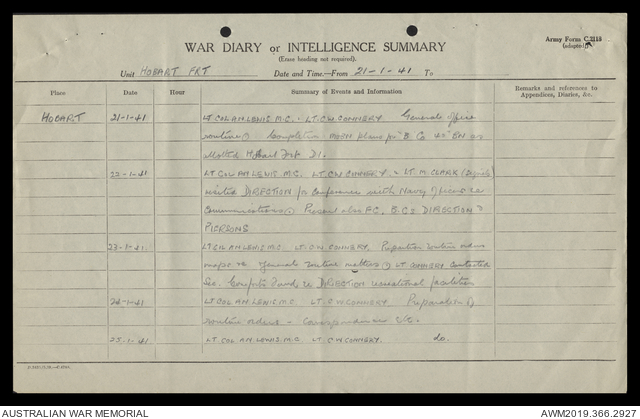 Army Form C.2118
(adapted)
WAR DIARY or INTELLIGENCE SUMMARY
(Erase heading not required).
Unit HOBART FRT Date and Time—From 21-1-41 To
Place Date Hour Summary of Events and Information Remarks and references to Appendices, Diaries, &c.
HOBART 21-1-41 LT COL A.H. LEWIS M.C. LT C.W. CONNERY. General office
routine. Completion plans for "B" Co 40 BN as
allotted Hobart
22-1-41 LT COL A.H. LEWIS M.C. LT C.W. CONNERY & LT M. CLARK (Signals)
visited DIRECTION for conference with Navy officers re
Communications. Present also F.C. B.C's DIRECTION &
PIERSONS
23-1-41. LT COL A.H. LEWIS M.C. LT C.W. CONNERY. Preparation routine orders
maps &c general routine matters LT CONNERY contacted
Sec. Comforts Fund re DIRECTION recreational facilities
24-1-41 LT COL A.H. LEWIS M.C. LT C.W CONNERY. Preparation of
routine orders - correspondence etc.
25-1-41 LT COL A.H. LEWIS M.C. LT C.W CONNERY. do.
AUSTRALIAN WAR MEMORIAL AWM2019.366.2927